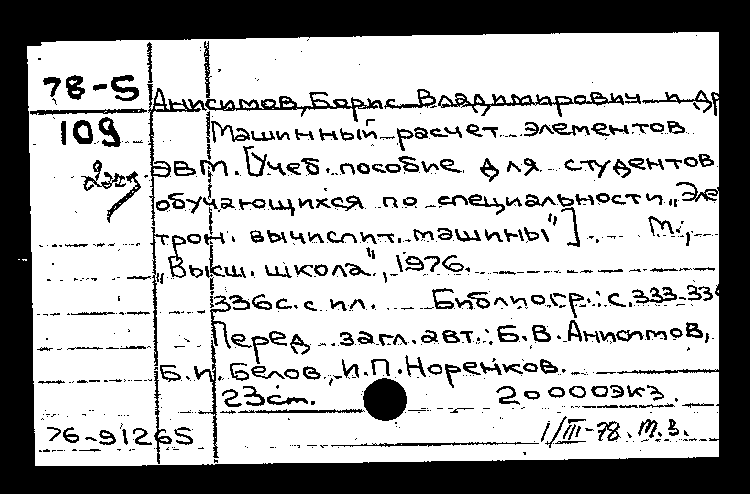 78-5 Анисимов, Борис Владимирович и др
109 Машинный расчет элементов
2экз. ЭВМ. [Учеб. пособие для студентов
обучающихся по специальности „Элек
трон. вычислит. машины"]. М.,
„Высш. школа", 1976.
336с. с ил. Библиогр.: с. 333-334
Перед загл. авт.: Б.В. Анисимов,
Б.И. Белов, И.П. Норенков.
23см. 20000экз.
76-91265 1/III-78. т.з.